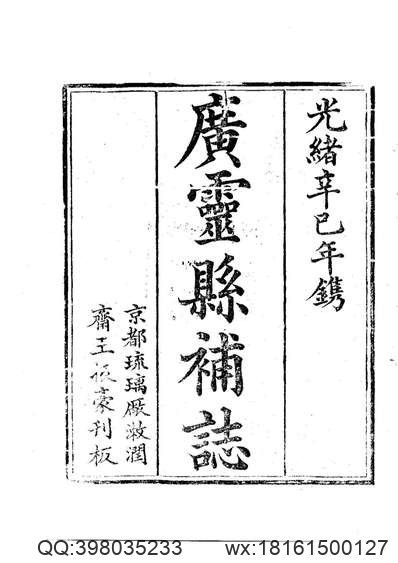 光緒辛巳年鐫
廣靈縣補誌
京都琉璃厰漱潤
齋王振豪刊板
QQ:398035233
wx:18161500127